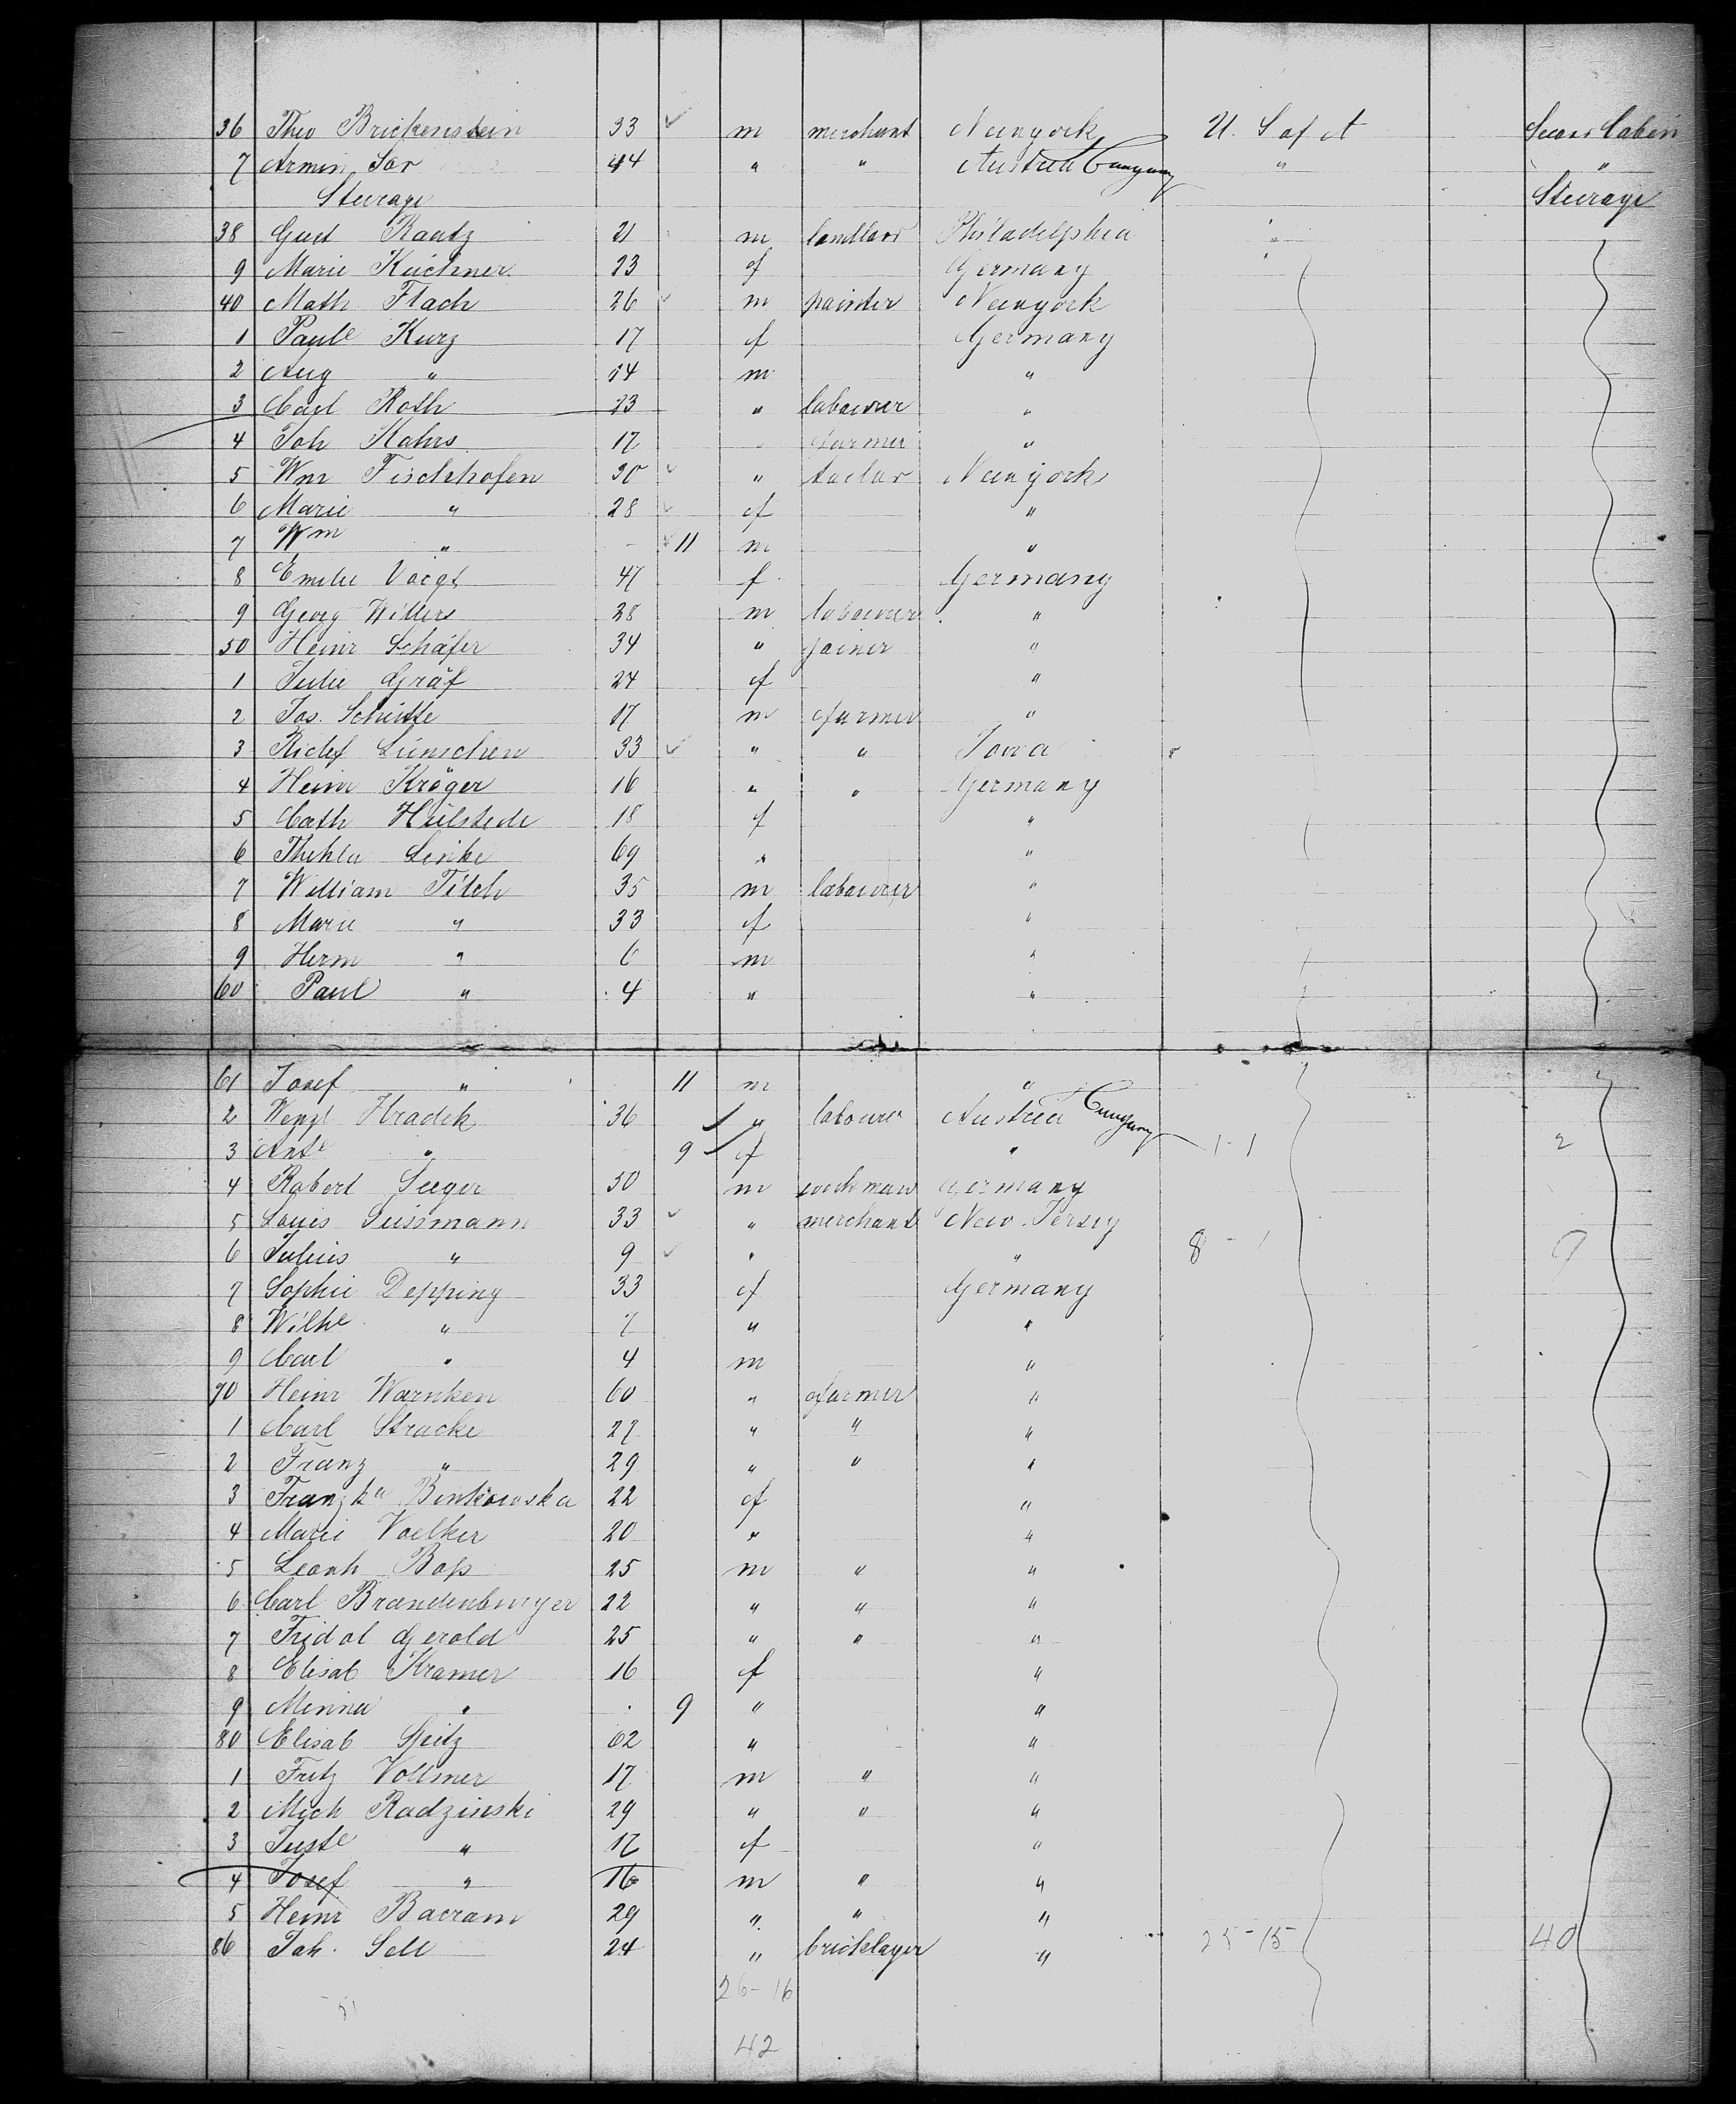 36 Theo Brickenstein 33 m merchant Neunyork U. S of A Second Cabin
7 Armin Sor 44 " " Austria Hungary " "
Steerage Steerage
38 Gust Rautz 21 m landlord Philadelphia "
9 Marie Kirchner 23 f Germany "
40 Math Flach 26 m painter Neunyork
1 Paule Kurz 17 f Germany
2 Aug " 14 m "
3 Carl Roth 23 " labourer "
4 Joh Kahrs 17 " farmer "
5 Wm Fischhofen 30 " tailor Neunyork
6 Marie " 28 f "
7 Wm " - 11 m "
8 Emilie Voigt 47 f Germany
9 Georg Willers 28 m labourer "
50 Heinr Schäfer 34 " joiner "
1 Julie Gräf 24 f "
2 Jos. Schütte 17 m farmer "
3 Richf Lünschen 33 " " Iowa
4 Heinr Kröger 16 " " Germany
5 Cath Hülstede 18 f "
6 Thekla Linke 69 " "
7 William Titch 35 m labourer "
8 Marie " 33 f "
9 Herm " 6 m "
60 Paul " 4 " "
61 Josef " 11 m "
2 Wenzl Hradek 36 " labourer Austria Hungary
3 Ante " 9 f " 1-1 2
4 Robert Seeger 50 m workman Germany
5 Louis Sussmann 33 " merchant New Jersey
6 Julius " 9 " " 8 - 1 9
7 Sophie Depping 33 f Germany
8 Wilhe " 7 " "
9 Carl " 4 m "
70 Heinr Warnken 60 " farmer "
1 Carl Stracke 27 " " "
2 Franz " 29 " " "
3 Franzka Binkowska 22 f "
4 Marie Voelker 20 " "
5 Leonh Boss 25 m " "
6 Carl Brandenburger 22 " " "
7 Fridol Gerold 25 " " "
8 Elisab Kramer 16 f "
9 Minna " 9 " "
80 Elisab Spitz 62 " "
1 Fritz Vollmer 17 m " "
2 Mich Radzinski 29 " " "
3 Juste " 17 f "
4 Josef " 16 m " "
5 Heinr Bacram 29 " " "
86 Joh. Sell 24 " bricklayer " 25-15 40
26-16
51
42